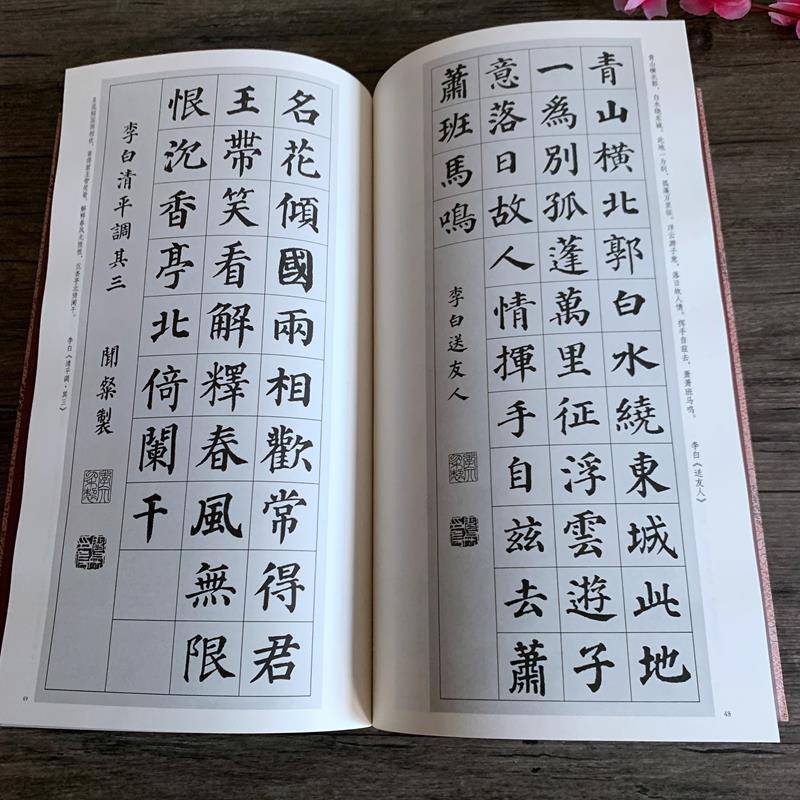 青山横北郭，白水绕东城。此地一为别，孤蓬万里征。浮云游子意，落日故人情。挥手自兹去，萧萧班马鸣。
李白《送友人》
青山橫北郭白水繞東城此地
一爲別孤蓬萬里征浮雲遊子
意落日故人情揮手自茲去蕭
蕭班馬鳴
李白送友人
48
名花傾國兩相歡常得君
王帶笑看解釋春風無限
恨沉香亭北倚闌干
李白清平調其三 聞粲製
名花倾国两相欢，常得君王带笑看。解释春风无限恨，沉香亭北倚阑干。
李白《清平调·其三》
49